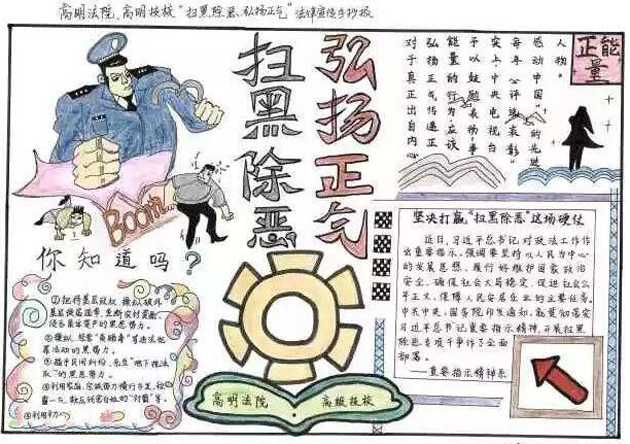 高明法院、高明技校"扫黑除恶、弘扬正气"法律宣传手抄报
扫黑除恶
弘扬正气
正能量
人物。
感动中国"的先进
每年心评选表彰"
突上,中央电视台
予以鼓励表扬,事
能量的行为,应该
弘扬正气传递正
对于真正出自内心
Boom
你知道吗?
①把持基层政权、操纵破坏
基层换届选举、垄断农村资源、
侵吞集体资产的黑恶势力。
②操纵、经营"黄赌毒"等违法犯
罪活动的黑恶势力。
③插手民间纠纷,充当"地下执法
队"的黑恶势力。
④利用家族、宗族势力横行乡里,称
霸一方、欺压残害百姓的"村霸"等。
坚决打赢"扫黑除恶"这场硬仗
近日,习近平总书记对政法工作作
出重要指示,强调要坚持以人民为中心
的发展思想,履行好维护国家政治
安全、确保社会大局稳定、促进社会公
平正义、保障人民安居乐业的主要任务。
中共中央、国务院印发通知,就贯彻落实
习近平总书记重要指示精神,开展扫黑
除恶专项斗争作了全面
部署。
——重要指示精神
高明法院
高级技校